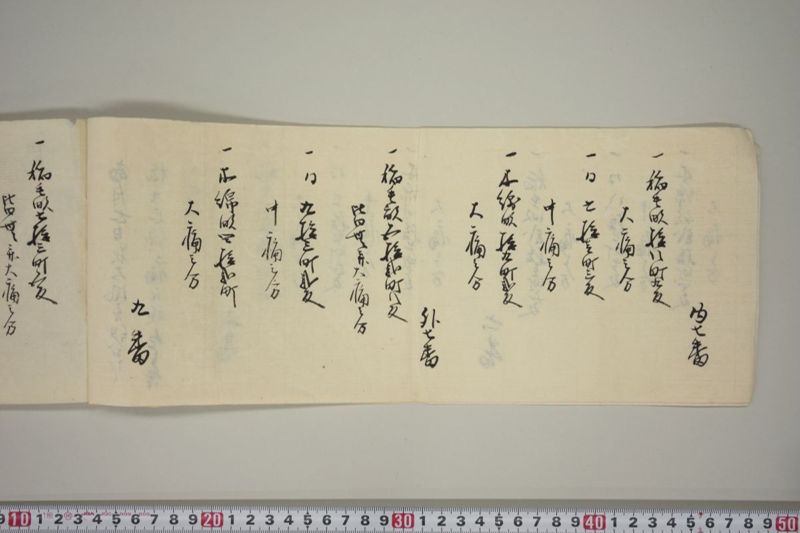 内七番
一 稲毛畝拾八町五反
大痛之分
一 同 七拾三町三反
叶痛之分
一 木綿畝拾九町五反
大痛之分
外七番
一 稲毛畝六拾弐町八反
皆無并大痛之分
一 同 九拾三町弐反
叶痛之分
一 木綿畝四拾弐町
大痛之分
九番
一 稲毛畝七拾三町六反
皆無并大痛之分
9 10 1 2 3 4 5 6 7 8 9 20 1 2 3 4 5 6 7 8 9 30 1 2 3 4 5 6 7 8 9 40 1 2 3 4 5 6 7 8 9 50